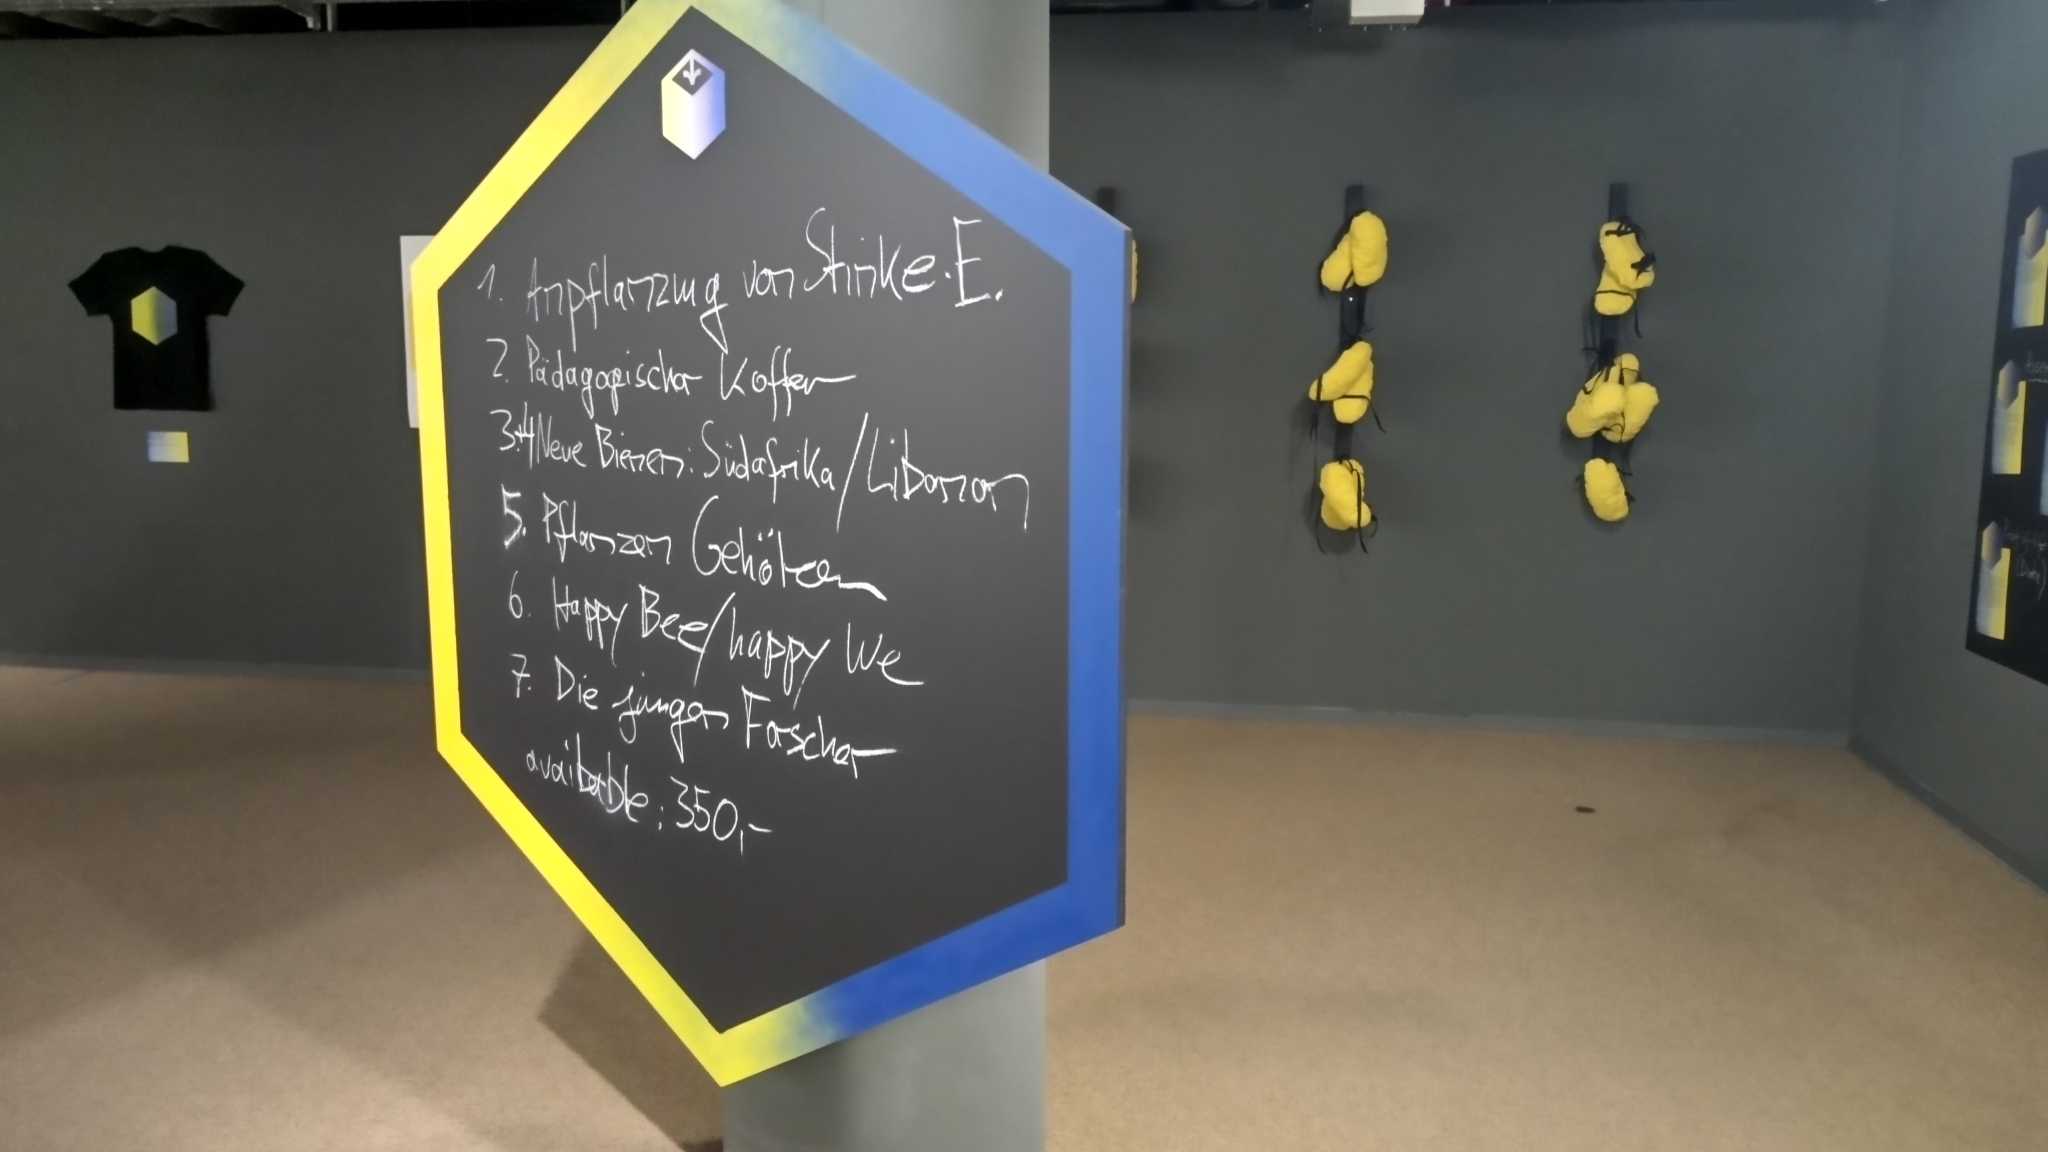 1. Anpflanzung von Stinke.E.
2. Pädagogischer Koffer
3.+4 Neue Bienen: Südafrika/Libanon
5. Pflanzen Gehölzen
6. Happy Bee/happy We
7. Die jungen Forscher
available: 350,-